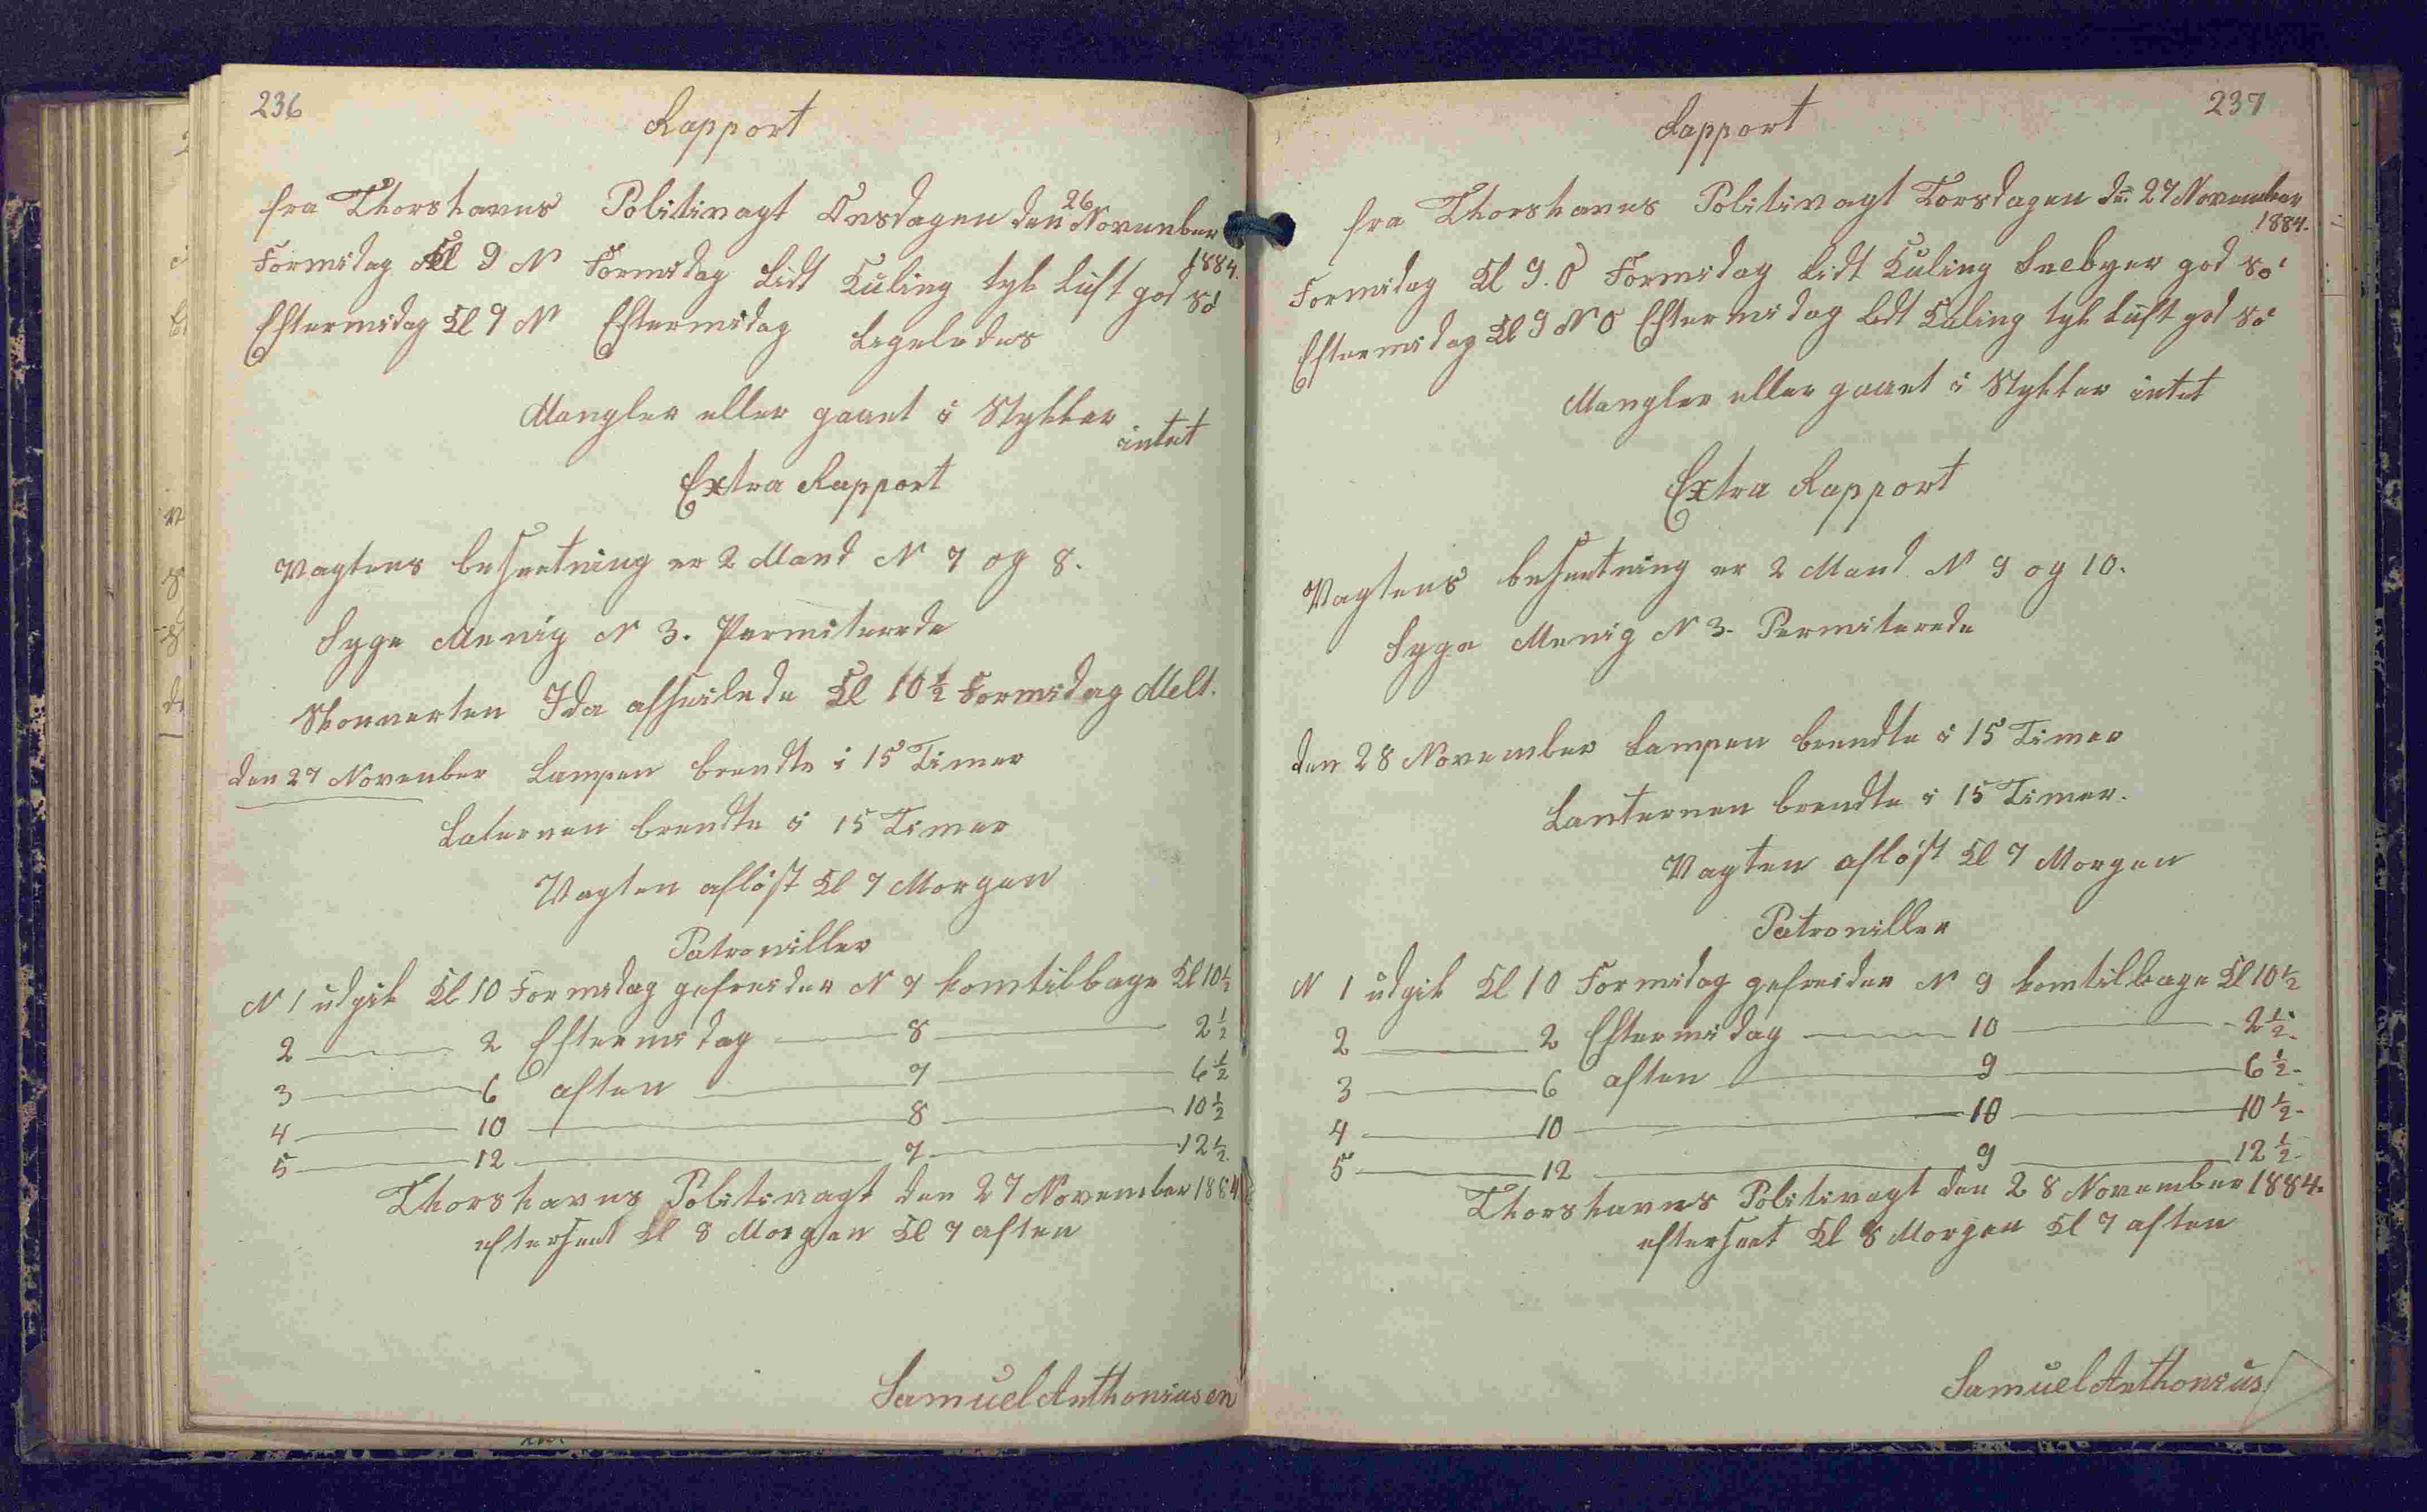 236
Rapport
fra Thorshavns Politivagt Onsdagen den 26 November
1884.
Formidag Kl 9 N Formidag Lidt Kuling tyk Luft god Sö
Eftermidag Kl 9 N Eftermidag Ligeledes
Mangler eller gaaet i Stykker
intet
Extra Rapport
Vagtens besætning er 2 Mand N 7 og 8.
Syge Menig N 3. Permiterede
Skonnerten Ida afseilede Kl 10½ Formidag Melt.
den 27 November Lampen brendte i 15 Timer
Laternen brendte i 15 Timer
Vagten aflöst Kl 7 Morgen
Patrouiller
N 1 udgik Kl 10 Formidag gefreider N 7 kom tilbage Kl 10½
2 — 2 Eftermidag — 8 — 2½
3 — 6 aften — 7 — 6½
4 — 10 — 8 — 10½
5 — 12 — 7 — 12½
Thorshavns Politivagt den 27 November 1884
efterseet Kl 8 Morgen Kl 7 aften
Samuel Anthoniusen
237
Rapport
fra Thorshavns Politivagt Torsdagen dn 27 November
1884.
Formidag Kl 9. O Formidag Lidt Kuling Snebyer god Sö
Eftermidag Kl 9 N O Eftermidag Lidt Kuling tyk Luft god Sö
Mangler eller gaaet i Stykker intet
Extra Rapport
Vagtens besætning er 2 Mand N 9 og 10.
Syge Menig N 3. Permiterede
den 28 November Lampen brendte i 15 Timer
Lanternen brendte i 15 Timer.
Vagten aflöst Kl 7 Morgen
Patrouiller
N 1 udgik Kl 10 Formidag gefreider N 9 kom tilbage Kl 10½
2 — 2 Eftermidag — 10 — 2½
3 — 6 aften — 9 — 6½
4 — 10 — 10 — 10½
5 — 12 — 9 — 12½
Thorshavns Politivagt den 28 November 1884.
efterseet Kl 8 Morgen Kl 7 aften
Samuel Anthonius